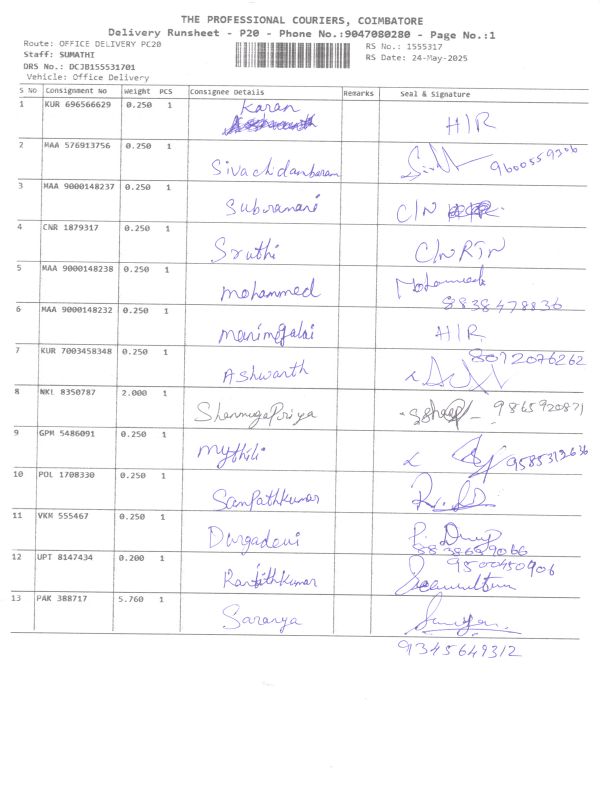 THE PROFESSIONAL COURIERS, COIMBATORE
Delivery Runsheet - P20 - Phone No.:9047080280 - Page No.:1
Route: OFFICE DELIVERY PC20
RS No.: 1555317
Staff: SUMATHI
RS Date: 24-May-2025
DRS No.: DCJB155531701
Vehicle: Office Delivery
S No Consignment No Weight PCS Consignee Details Remarks Seal & Signature
1 KUR 696566629 0.250 1 Karan H/R
2 MAA 576913756 0.250 1 Sivachidambaram 9600559306
3 MAA 9000148237 0.250 1 Subramani C/N
4 CNR 1879317 0.250 1 Sruthi C/N RTN
5 MAA 9000148238 0.250 1 Mohammed
8838478836
6 MAA 9000148232 0.250 1 Manimegalai H/R
7 KUR 7003458348 0.250 1 Ashwanth 8072076262
8 NKL 8350787 2.000 1 ShanmugaPiriya 9865920871
9 GPM 5486091 0.250 1 Mythili 9585312636
10 POL 1708330 0.250 1 Sampathkumar
11 VKM 555467 0.250 1 Durgadevi
12 UPT 8147434 0.200 1 Ranjithkumar 9500450906
13 PAK 388717 5.760 1 Saranya
9345649312